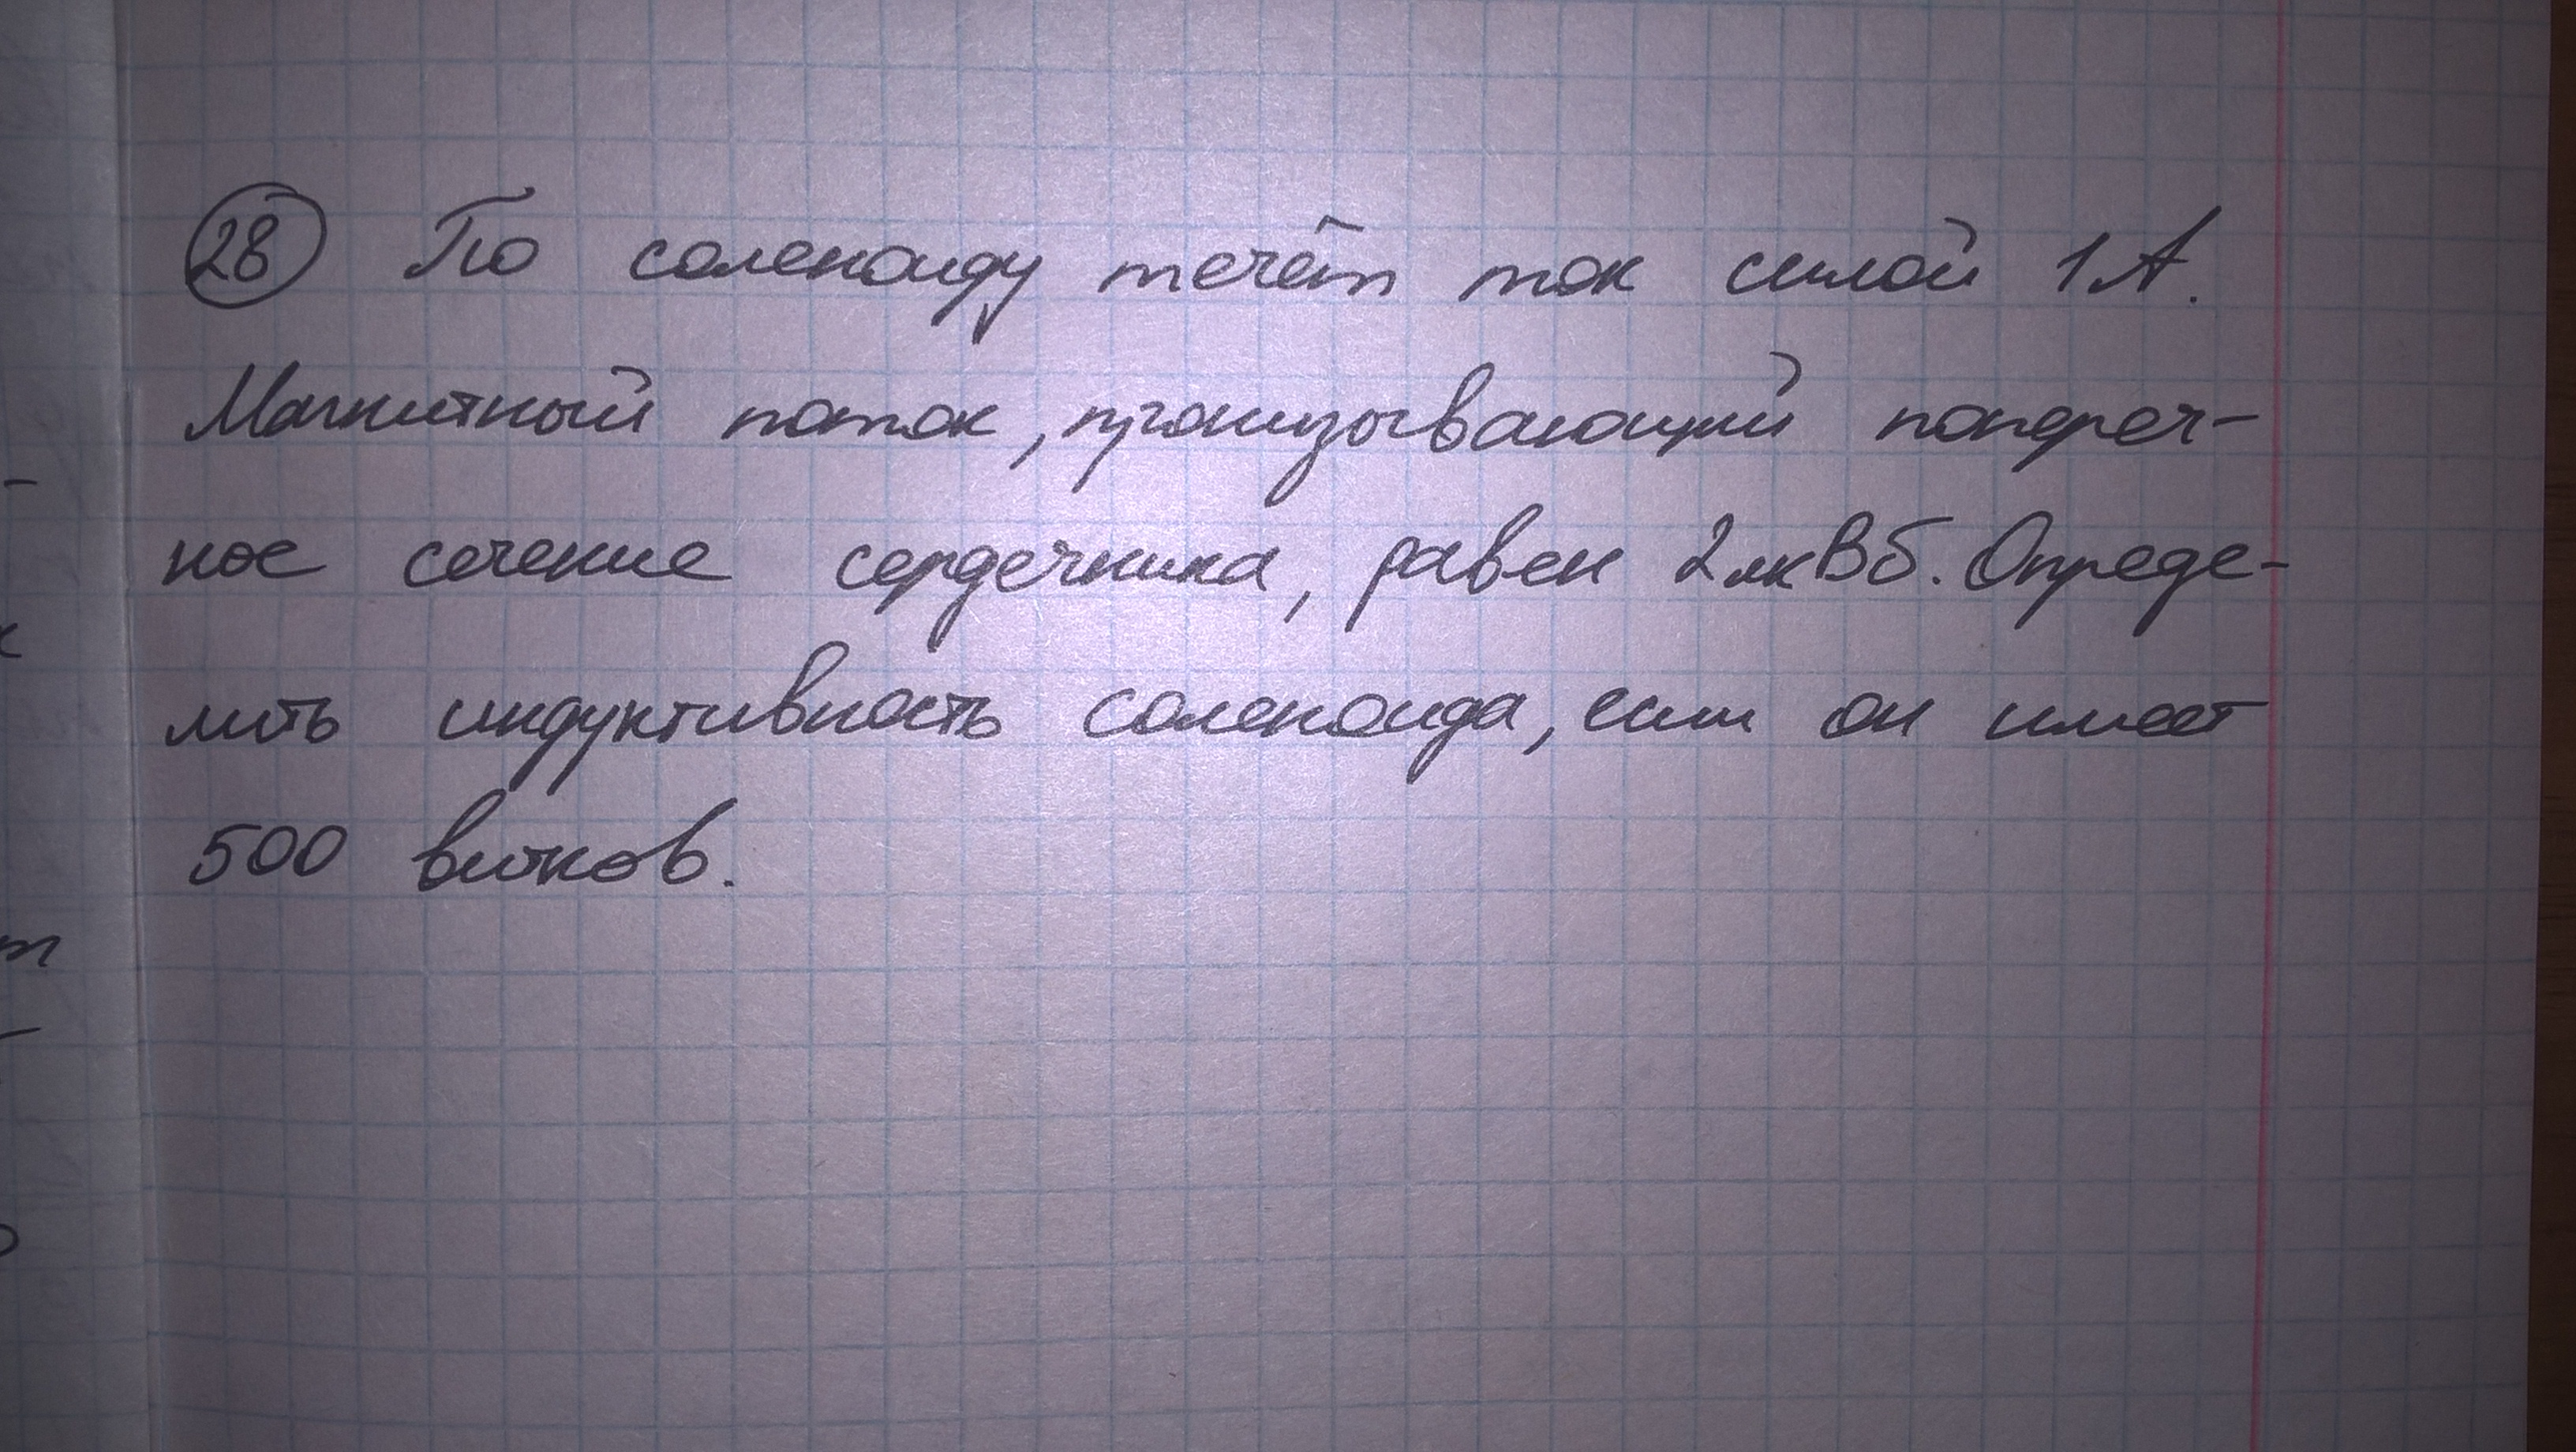 28 По соленоиду течёт ток силой 1А.
Магнитный поток, пронизывающий попереч-
ное сечение сердечника, равен 2мкВб. Опреде-
лить индуктивность соленоида, если он имеет
500 витков.